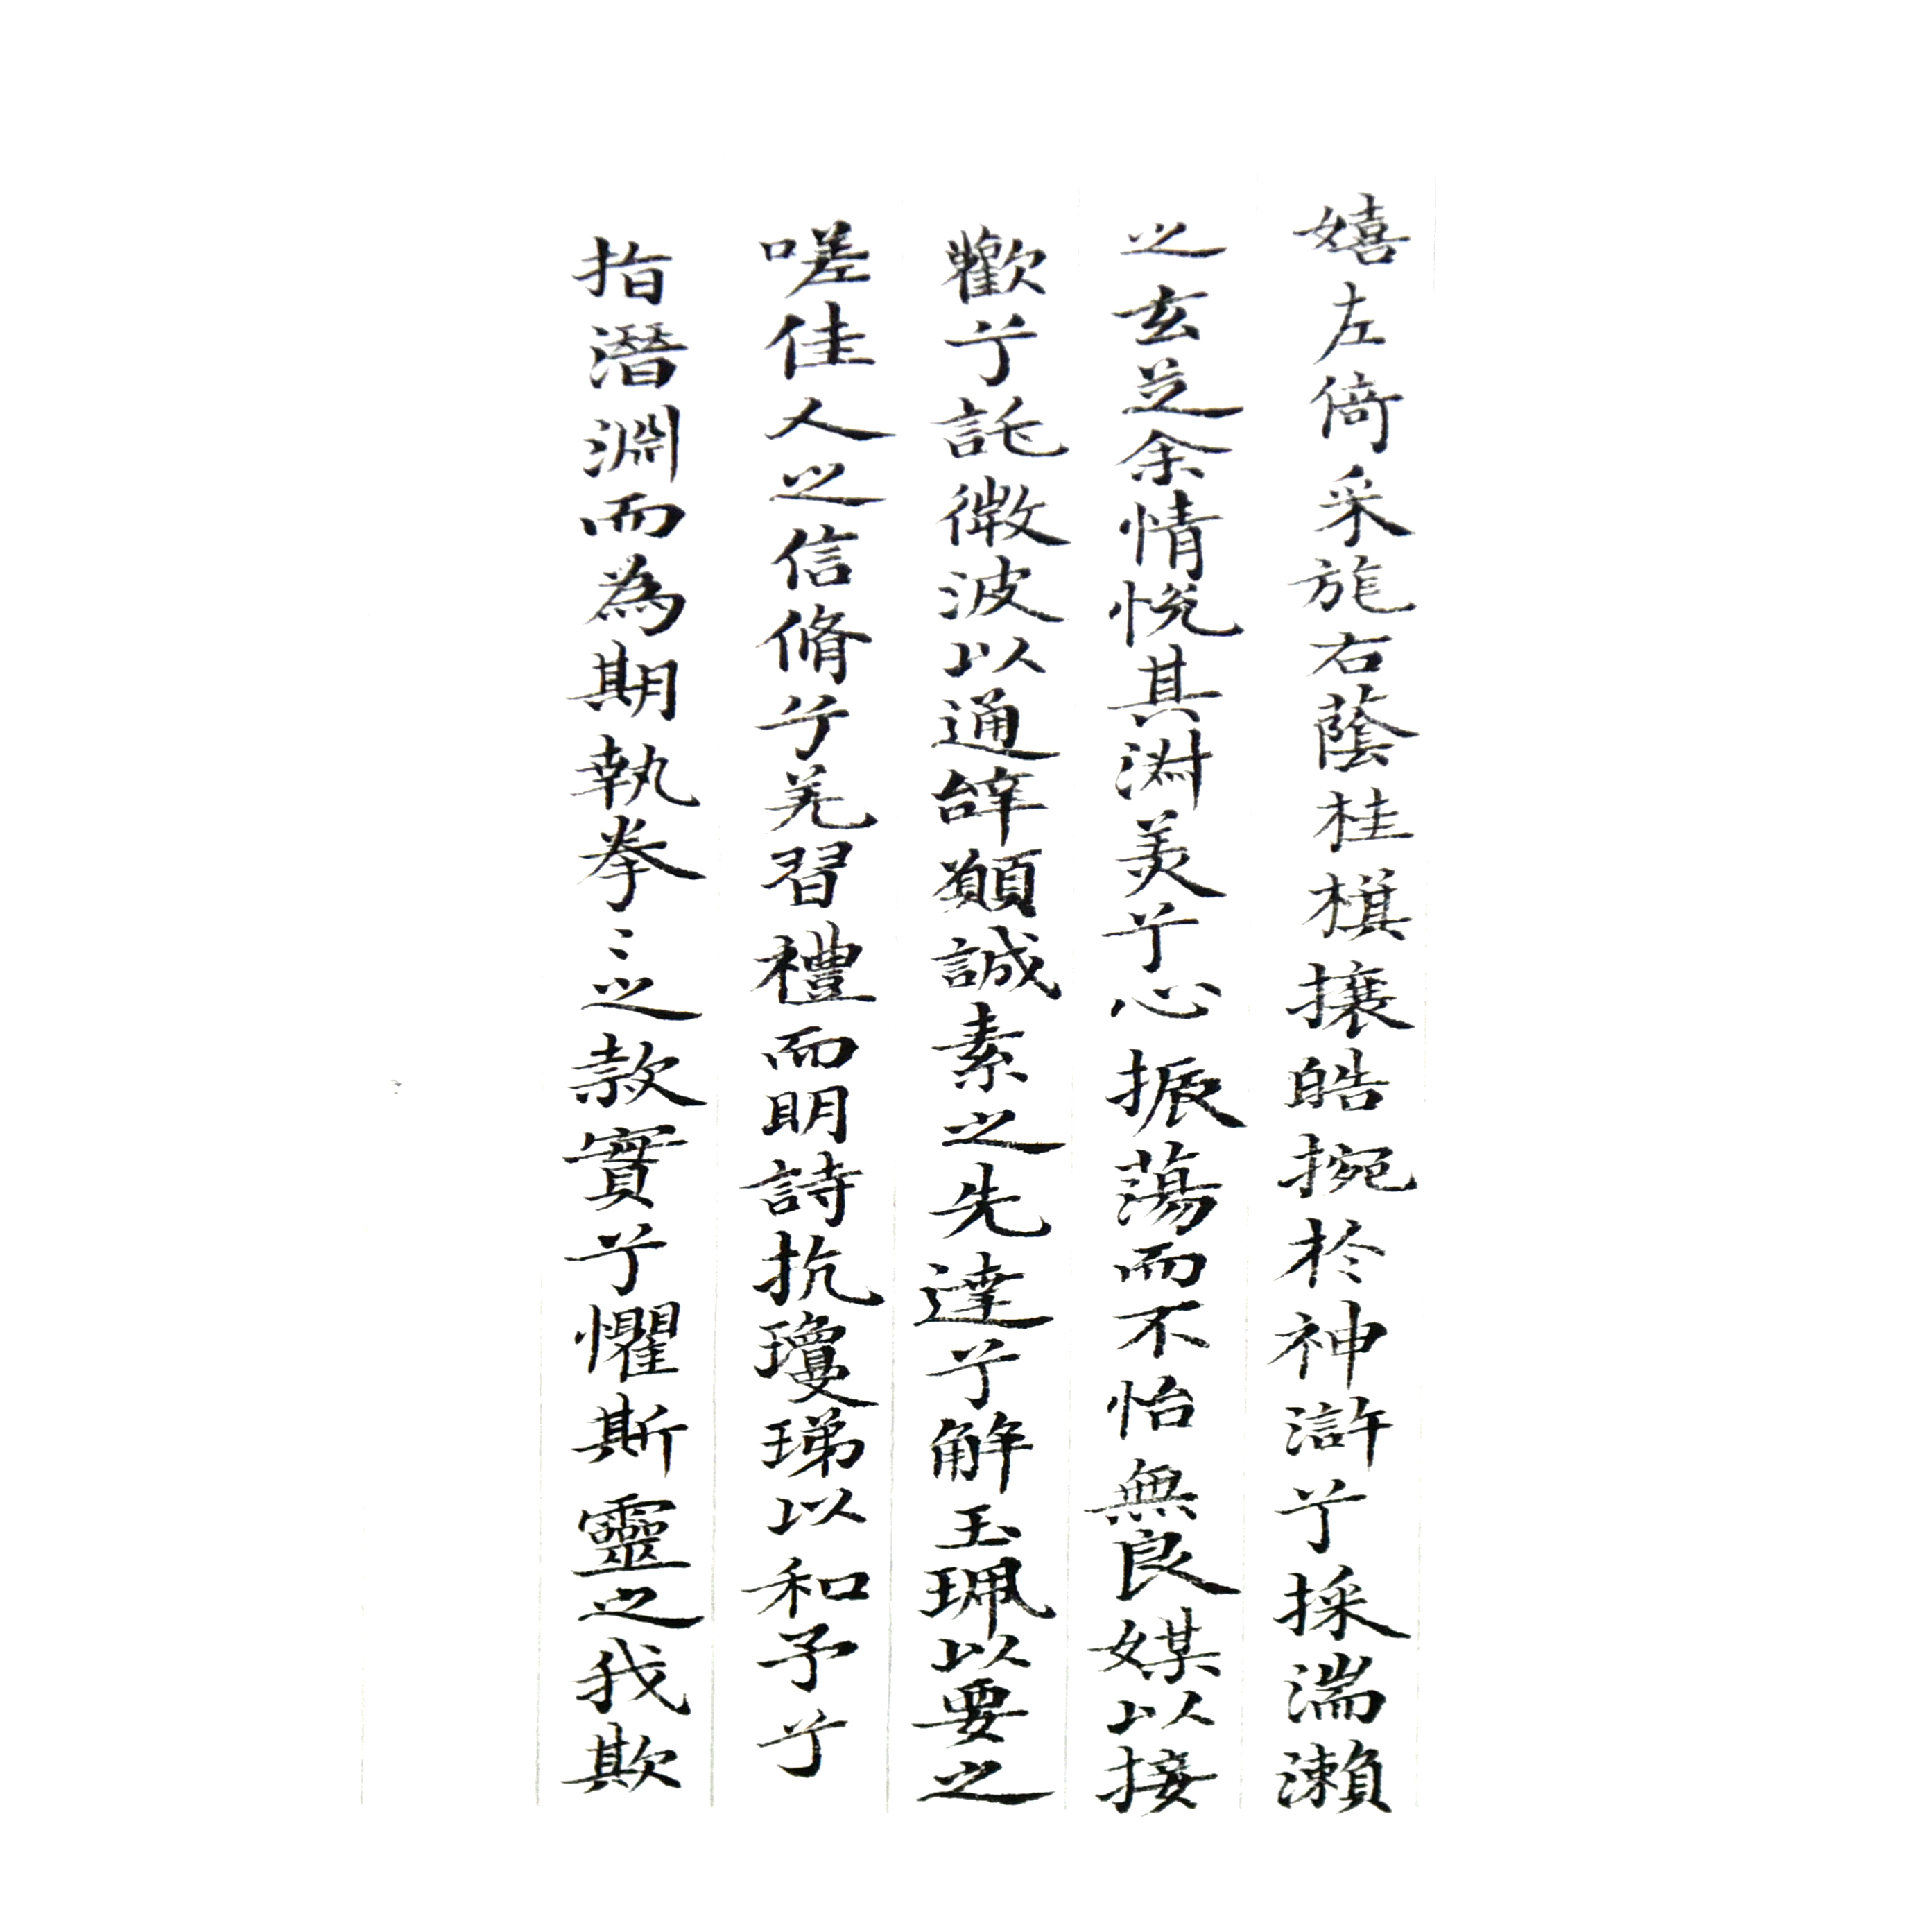 嬉左倚采旄右蔭桂旗攘皓捥於神滸兮採湍瀨
之玄芝余情悅其淑美兮心振蕩而不怡無良媒以接
歡兮託微波以通辝願誠素之先達兮解玉珮以要之
嗟佳人之信脩兮羌習禮而明詩抗瓊珶以和予兮
指潛淵而為期執拳〻之款實兮懼斯靈之我欺